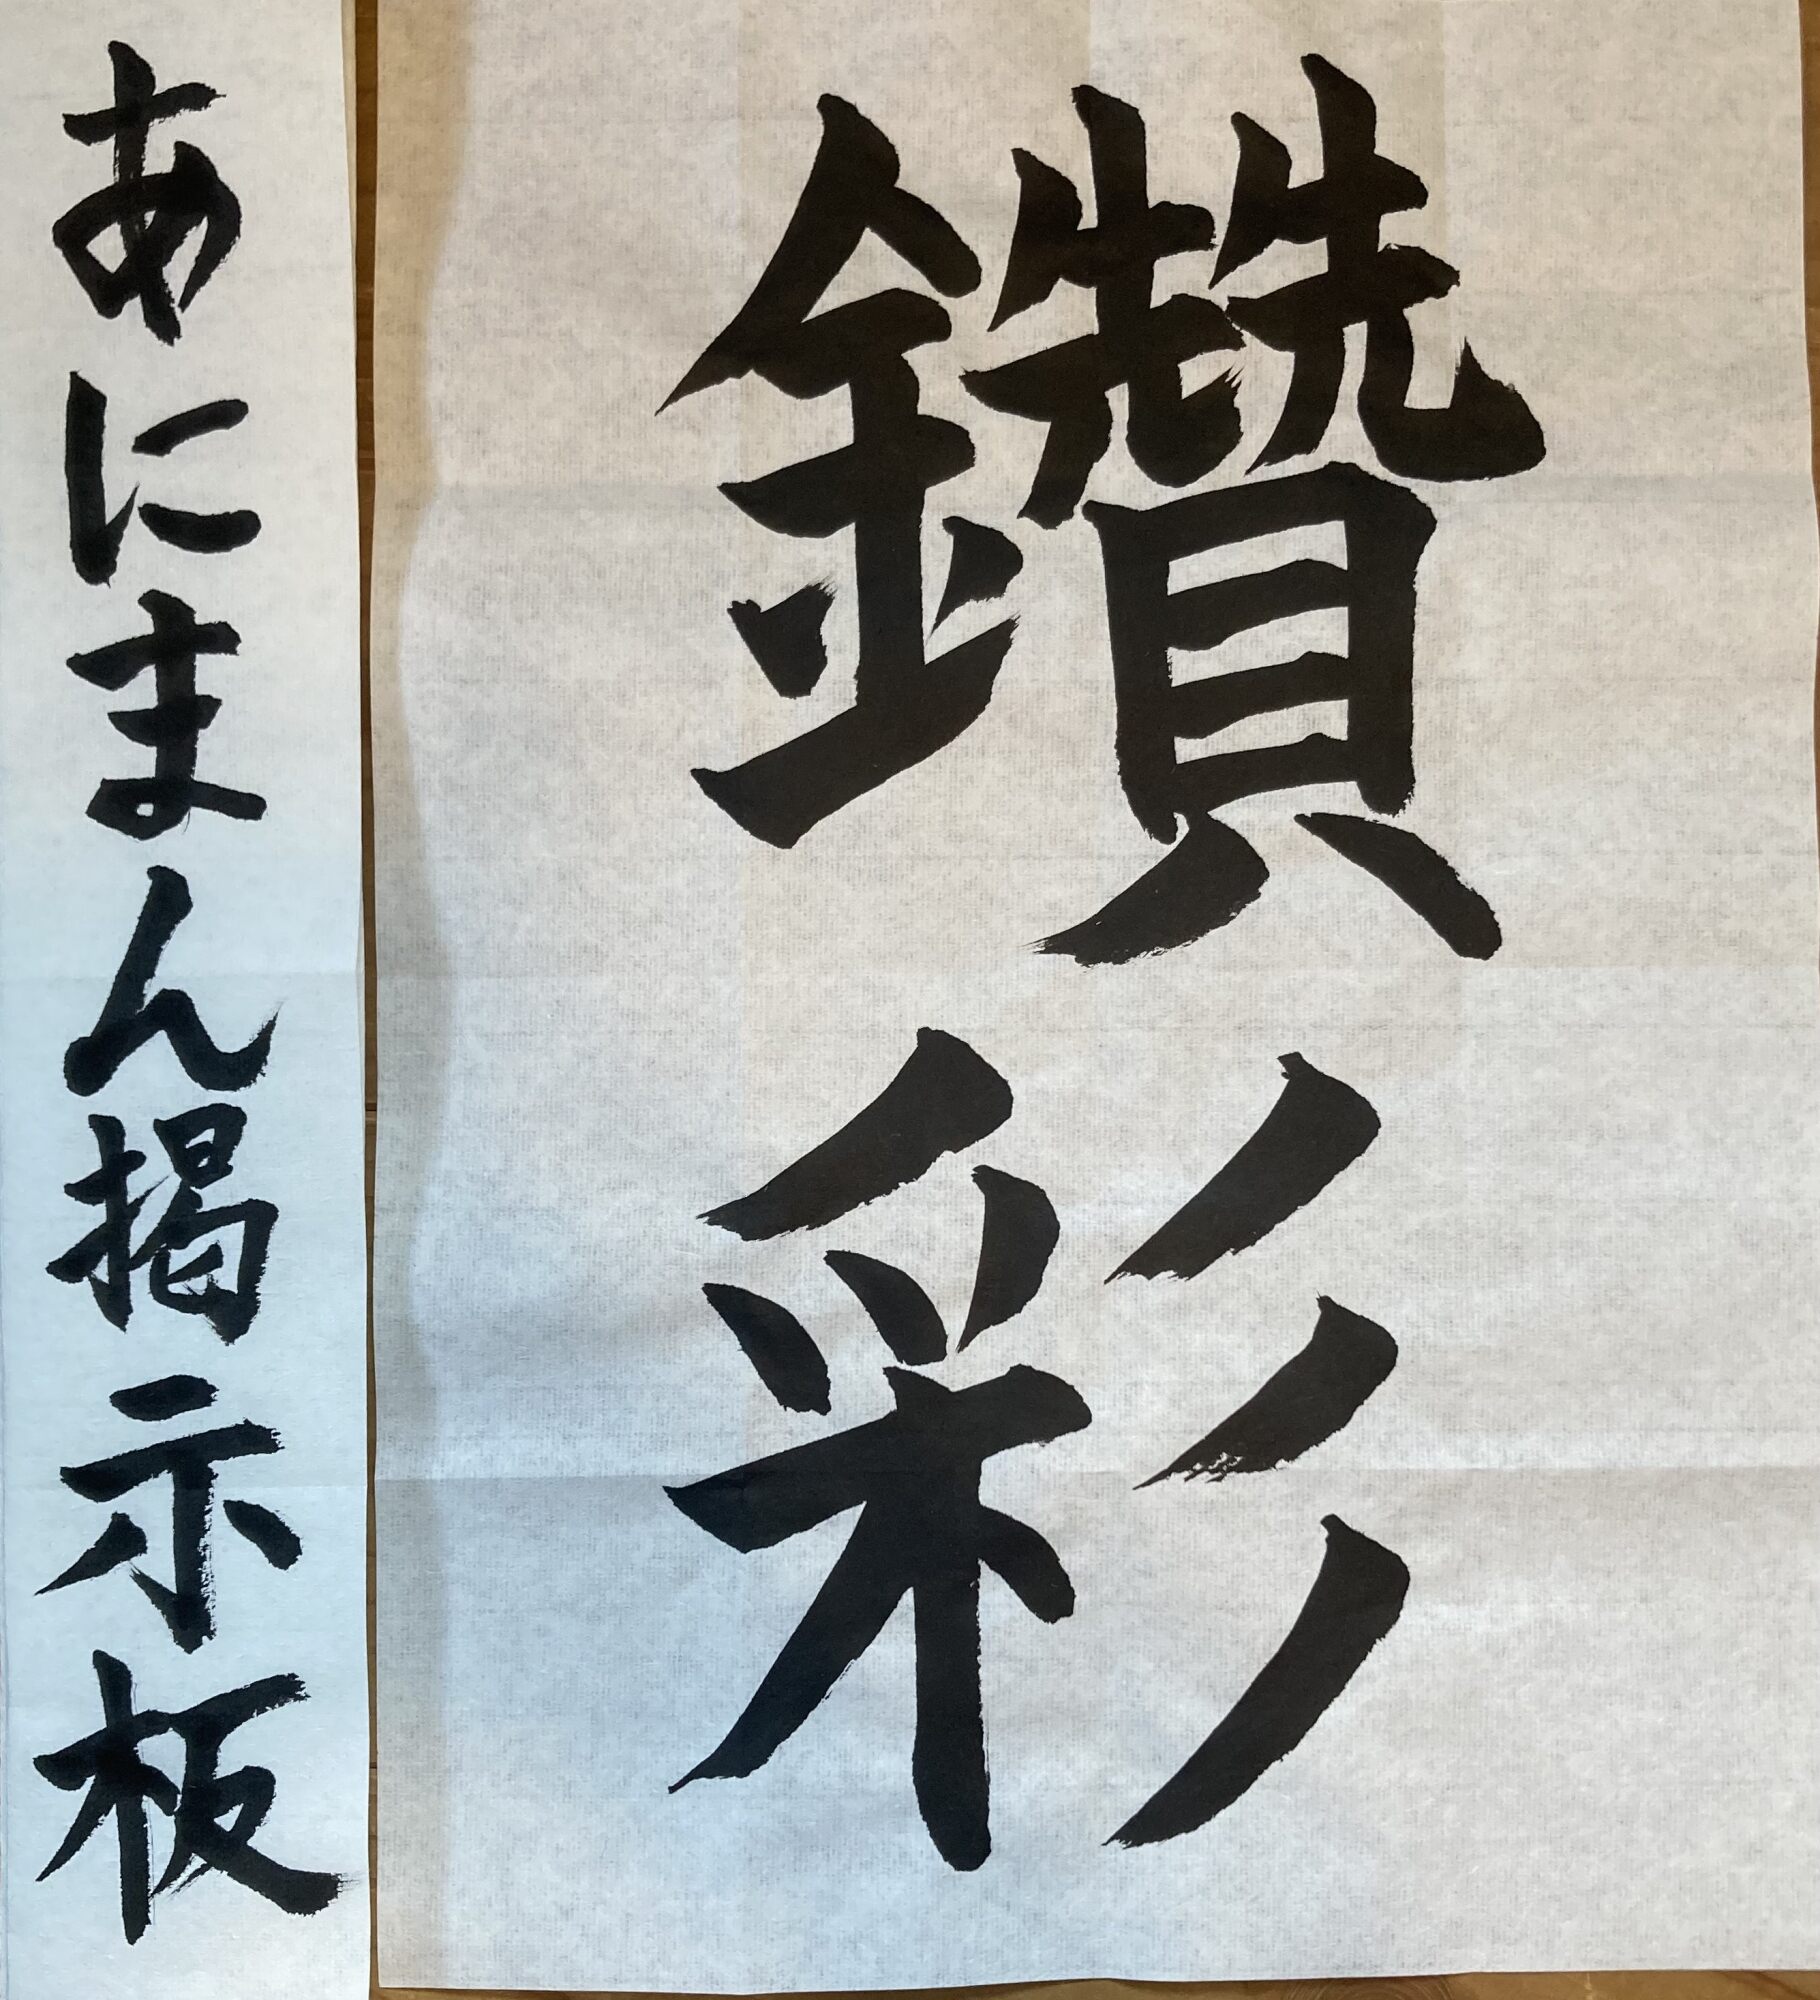 鑽彩
あにまん掲示板